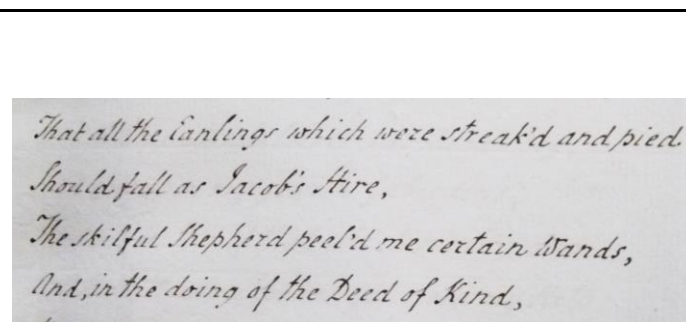 That all the Eanlings which were streak'd and pied
Should fall as Jacob's Hire,
The skilful Shepherd peel'd me certain Wands,
And, in the doing of the Deed of Kind,